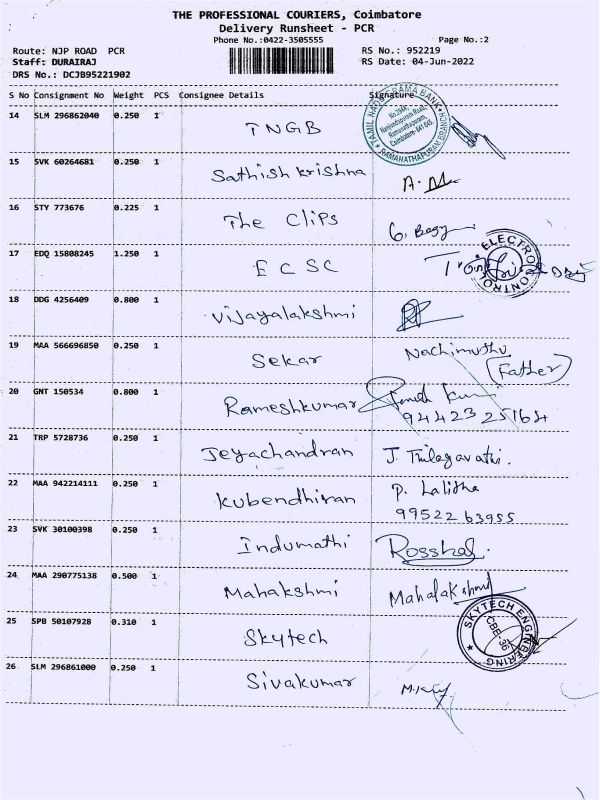 THE PROFESSIONAL COURIERS, Coimbatore
Delivery Runsheet - PCR
Phone No.:0422-3505555
Page No.:2
Route: NJP ROAD PCR
RS No.: 952219
Staff: DURAIRAJ
RS Date: 04-Jun-2022
DRS No.: DCJB95221902
S No Consignment No Weight PCS Consignee Details Signature
14 SLM 296862040 0.250 1 TNGB
TAMIL NADU GRAMA BANK
No.294A,
Nanjundapuram Road,
Ramanathapuram,
Coimbatore-641 045.
RAMANATHAPURAM BRANCH
15 SVK 60264681 0.250 1 Sathish krishna
16 STY 773676 0.225 1 The Clips
17 EDQ 15808245 1.250 1 ECSC
ELECTRO CONTROL
18 DDG 4256409 0.800 1 Vijayalakshmi
19 MAA 566696850 0.250 1 Sekar Nachimuthu
(Father)
20 GNT 150534 0.800 1 Rameshkumar
9442325164
21 TRP 5728736 0.250 1 Jeyachandran J. Thilagavathi.
22 MAA 942214111 0.250 1 Kubendhiran P. Lalitha
9952263955
23 SVK 30100398 0.250 1 Indumathi
24 MAA 290775138 0.500 1 Mahakshmi Mahalakshmi
25 SPB 50107928 0.310 1 Skytech
SKYTECH ENGINEERING
CBE-36
26 SLM 296861000 0.250 1 Sivakumar